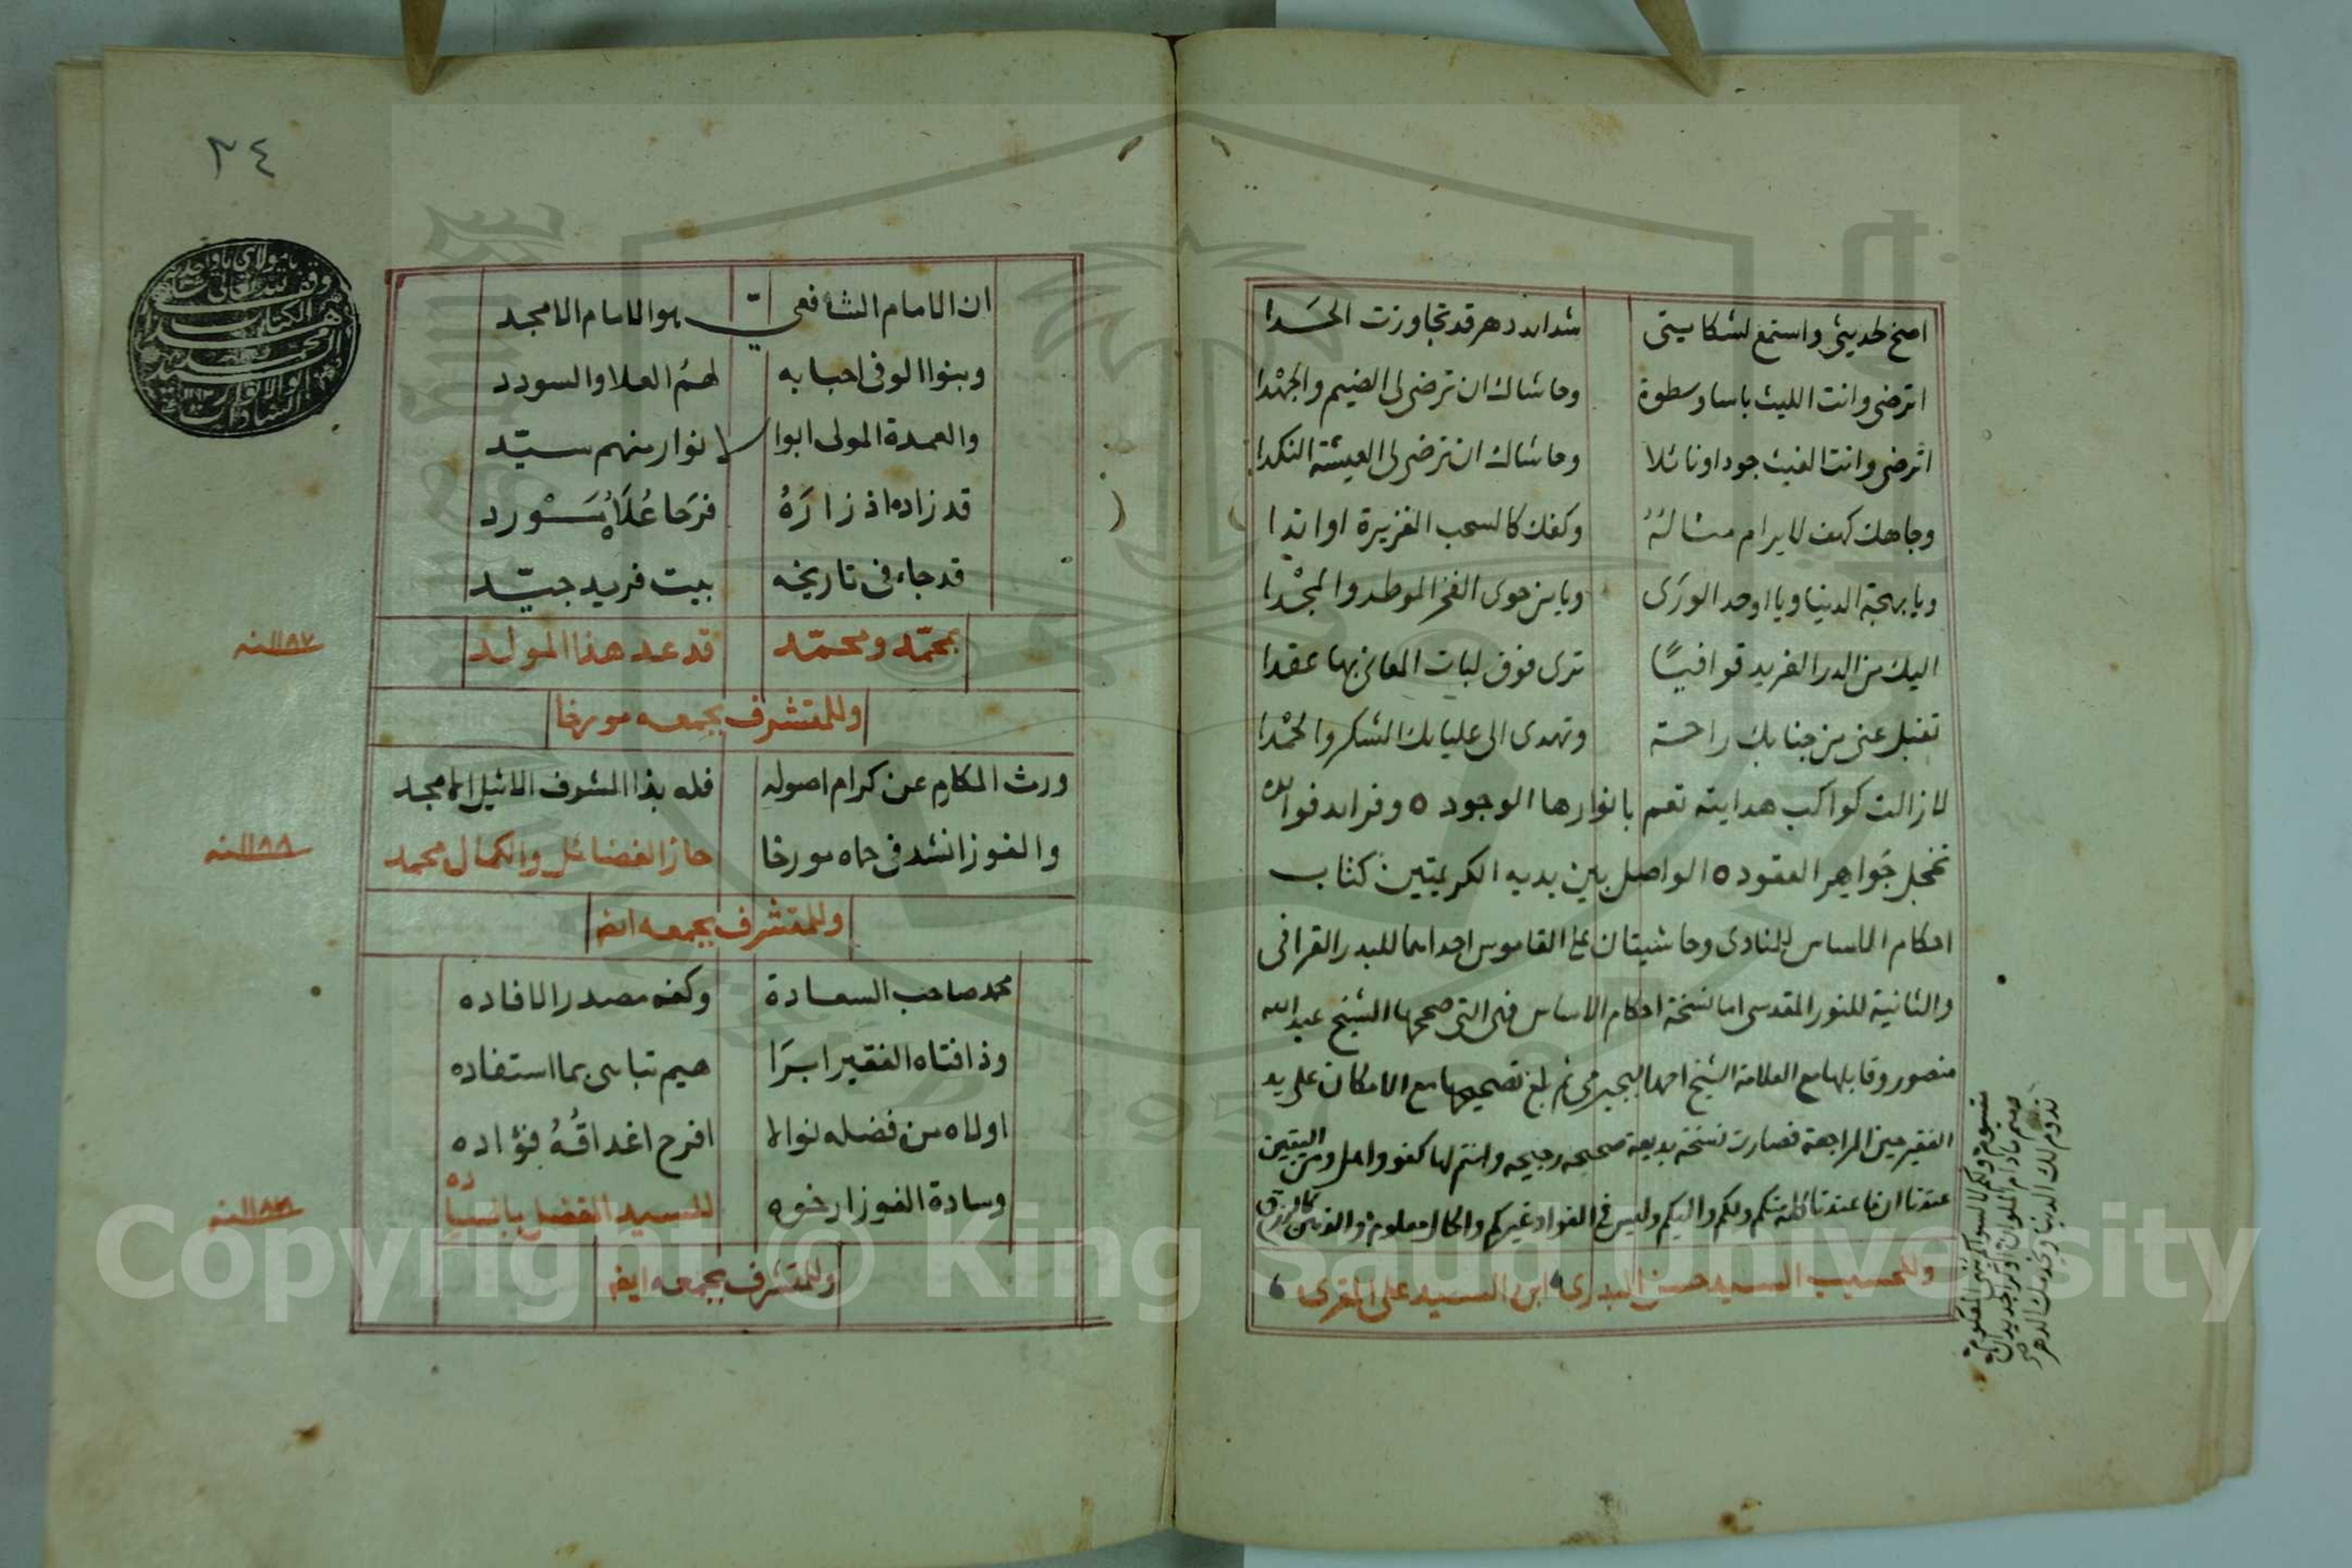 اصخ لحديثي واستمع لشكايتي شدائد دهر قد تجاوزت الحَدا
اترضى وانت الليث باسا وسطوة وحاشاك ان ترضى لى الضيم والجهْدا
اترضى وانت الغيث جودا ونائلا وحاشاك ان ترضى لى العيشة النكدا
وجاهك كهف لا يرام مناله وكفك كالسحب الغزيرة او اندا
ويا بهجة الدنيا ويا اوحد الورَى ويا من حوى الفخر الموطد والمجْدا
اليك من الدر الفريد قوافيًا ترى فوق لبات المعانى بها عقدا
تقبل عنى من جنابك راحة وتهدى الى عليائك الشكر والحمْدا
لا زالت كواكب هدايته تعم بانوارها الوجود ٥ وفرائد فوائده
تخجل جَواهر العقود ٥ الواصل بين يديه الكريمتين كتاب
احكام الاساس للمناوى وحاشيتان على القاموس احداهما للبدر القرافى
والثانية للنور المقدسى اما نسخة احكام الاساس فهى التى صححها الشيخ عبد الله
منصور وقابلها مع العلامة الشيخ احمد البجيرمى ثم بلغ تصحيحها مع الامكان على يد
الفقير حين المراجعة فصارت نسخة بديعة صحيحه رجيحه وانتم لها كفو واهل ومن اليقين
عندنا ان ما عندنا منكم ولكم واليكم وليس فى الفواد غيركم والحال معلوم
وللحسيب السيد حسن البدرى ابن السيد على المقرى
تدوم لك الدنيا ويخدمك الدهر
٣٤
يا مولاى يا واحد
وقف لله تعالى
هذا الكتاب
السيد محمد
ابو الانوار
السادات
ان الامام الشافعيّ هو الامام الامجد
وبنوا الوفى احبابه لهمُ العلا والسودد
والعمدة المولى ابوا لانوار منهم سيّد
قد زاده اذ زارَهُ فرَحا عُلَاهُ
قد جاء فى تاريخه بيت فريد جيّد
بمحمّد ومحمّد قد عد هذا المولد
١١٨٧ سنه
وللمتشرف بجمعه مورخا
ورث المكارم عن كرام اصوله فله بذا الشرف الاثيل الامجد
والفوز انشد فى حماه مورخا حاز الفضائل والكمال محمد
١١٨٨ سنه
وللمتشرف بجمعه ايضا
محمد صاحب السعادة وكفه مصدر الافاده
وذا فتاه الفقير ابرَا هيم تباهى بما استفاده
اولاه من فضله نوالا افرح اغداقُهُ فؤاده
وسادة الفوز ارخوه للسيد الفضل
وللمتشرف بجمعه ايضا
Copyright © King Saud University
1957